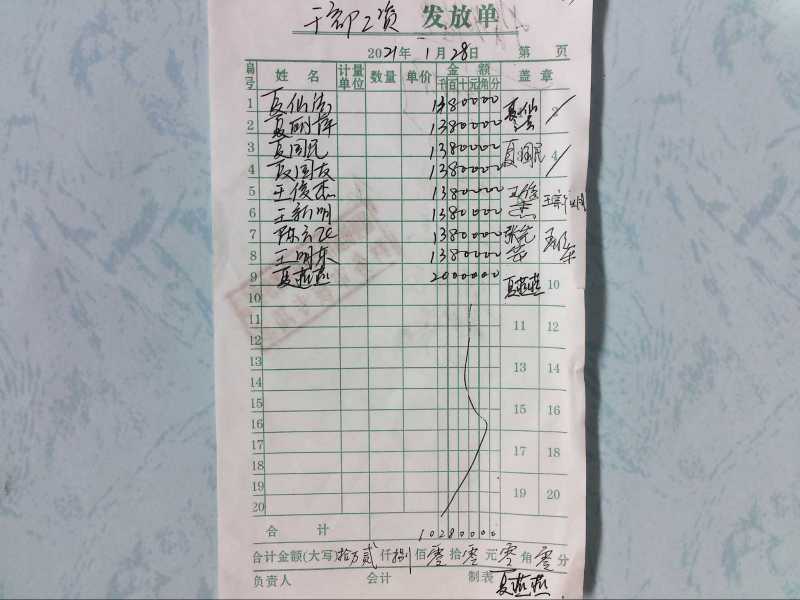 干部工资 发放单
2021年 1月28日 第 页
编号 姓名 计量单位 数量 单价 金额 千百十元角分 盖章
1 夏仙法 1380000 夏仙法
2 夏丽萍 1380000
3 夏国民 1380000 夏国民 4
4 夏国友 1380000
5 王俊杰 1380000 王俊杰 王新明
6 王新明 1380000
7 1380000
8 王明东 1380000
9 夏燕燕 2000000 夏燕燕 10
10
11 11 12
12
13 13 14
14
15 15 16
16
17 17 18
18
19 19 20
20
合计 10280000
合计金额(大写)拾万贰仟捌佰零拾零元零角零分
负责人 会计 制表 夏燕燕